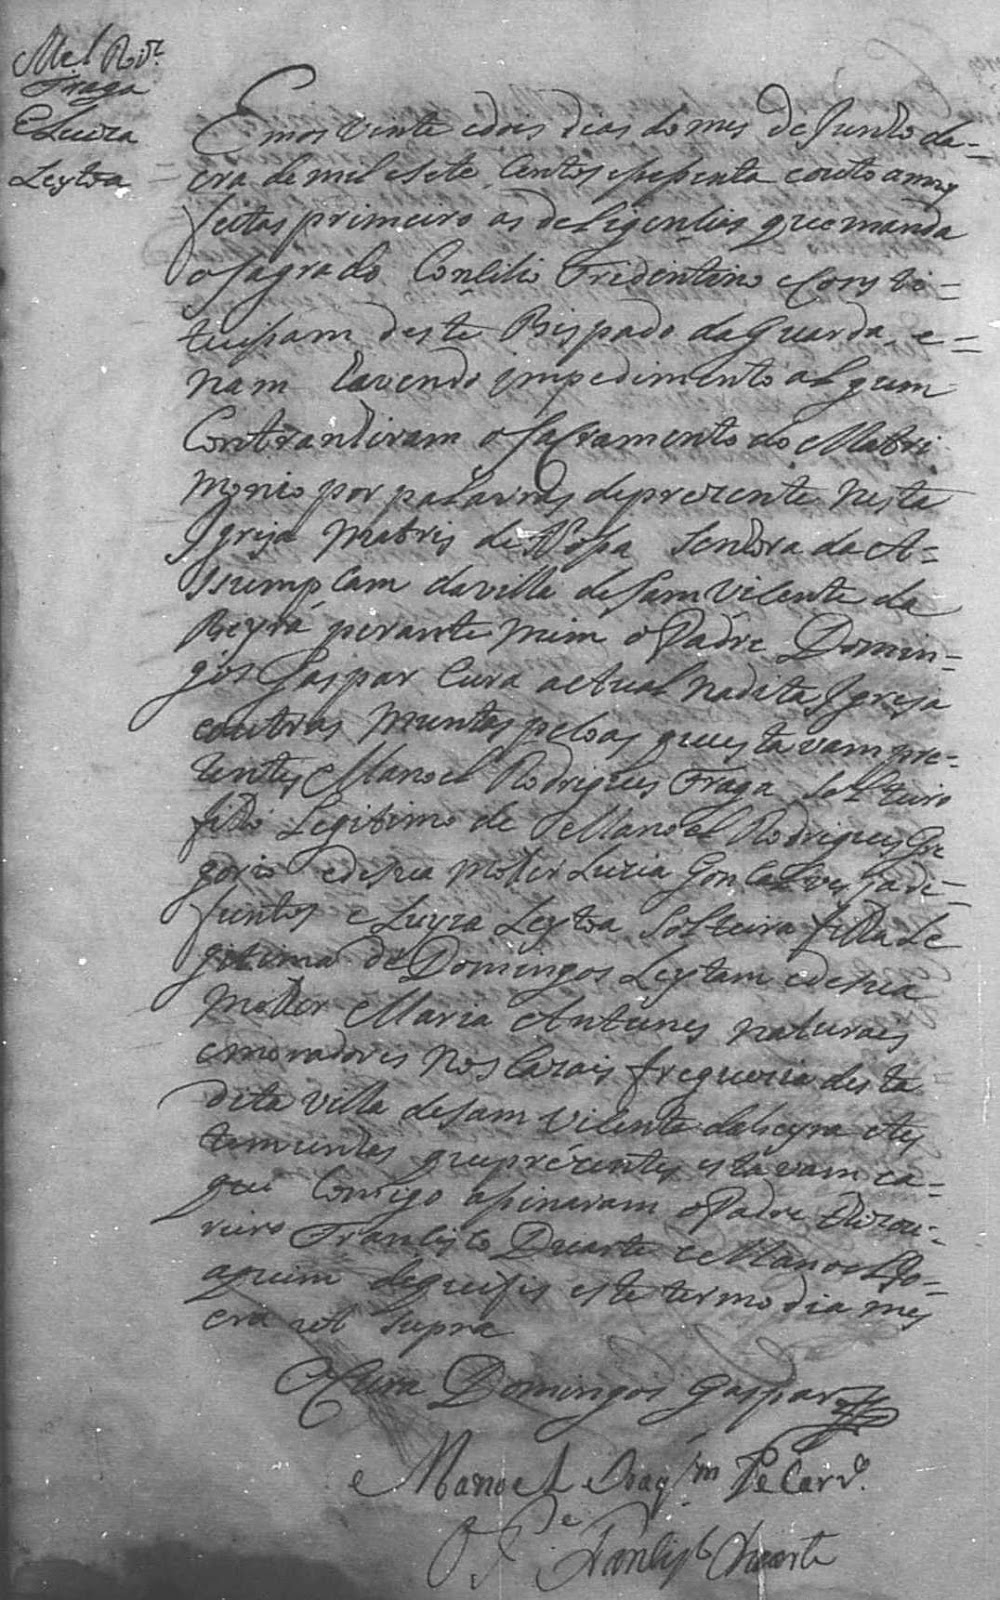 Mel Roiz
Fraga
E Luiza
Leytoa
Em os vinte e dois dias do mes de Junho da
era de mil e sete Centos e sesenta e outo annos
feitas primeiro as deligencias que manda
o sagrado Concilio Tridentino e Consti
tuisam deste Bispado da Guarda, e
nam havendo impedimento algum
Contrahiram o sacramento do Matri
monio por palavras de prezente nesta
Igreja Matris de Nossa Senhora da A
ssumpcam da villa de Sam Vicente da
Beyra perante mim o Padre Domin
gos Gaspar Cura actual na dita Igreja
e outras muntas pesoas que estavam pre
zentes Manoel Rodrigues Fraga Solteiro
filho Legitimo de Manoel Rodrigues Gre
gorio e de sua molher Luzia Goncalves ja de
funtos e Luiza Leytoa Solteira filha Le
gitima de Domingos Leytam e de sua
molher Maria Antunes naturaes
e moradores nos Cazais freguezia desta
dita villa de Sam Vicente da beyra e tes
temunhas que prezentes estavam e a
qui Comigo asinaram o Padre Thizou
reiro Francisco Duarte e Manoel Jo
aquim de que fis este termo dia mes
era ut supra
O Cura Domingos Gaspar
Manoel Joaqim
O Pe Francisco Duarte